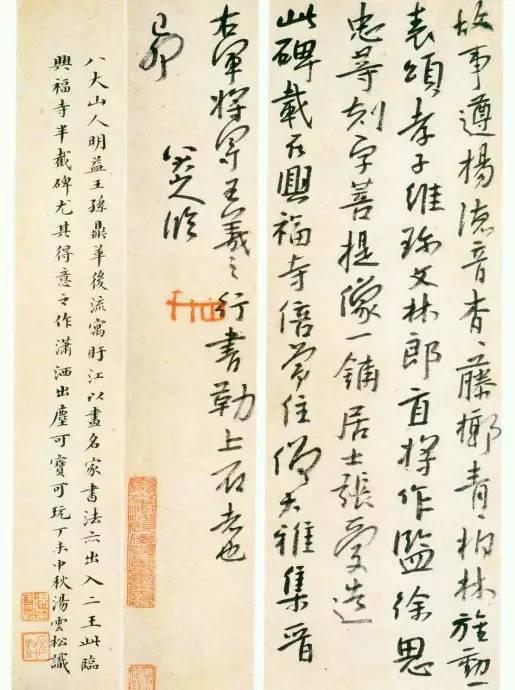 故事遵楊德音杳〻藤鄉青〻柏林旌勳
表頌孝子維琛文林郎直將作監徐思
忠等刻字菩提像一鋪居士張愛造
此碑載在興福寺陪常住僧大雅集晉
右軍將軍王羲之行書勒上石者也
八大山人臨
八大山人明益王孫鼎革後流寓盱江以畫名家書法亦出入二王此臨
興福寺半截碑尤其得意之作瀟洒出塵可寶可玩丁未中秋湯雲松識